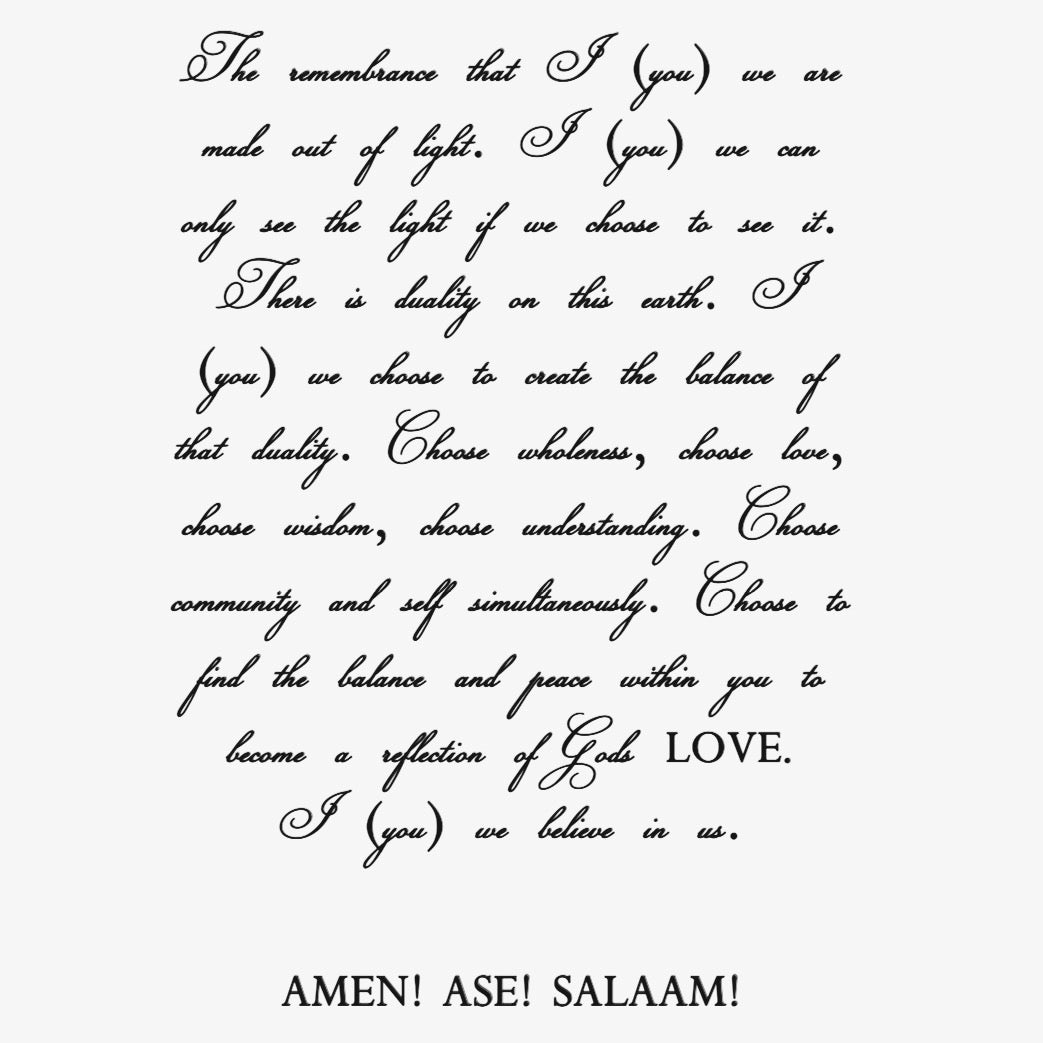 The remembrance that I (you) we are
made out of light. I (you) we can
only see the light if we choose to see it.
There is duality on this earth. I
(you) we choose to create the balance of
that duality. Choose wholeness, choose love,
choose wisdom, choose understanding. Choose
community and self simultaneously. Choose to
find the balance and peace within you to
become a reflection of Gods LOVE.
I (you) we believe in us.
AMEN! ASE! SALAAM!